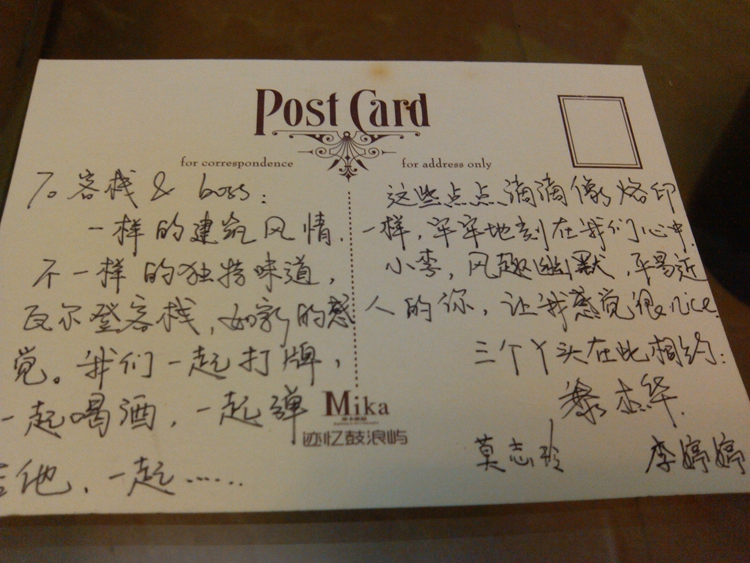 Post Card
for correspondence
for address only
To 客栈 & boss:
一样的建筑风情,
不一样的独特味道,
瓦尔登客栈,如家的感
觉。我们一起打牌,
一起喝酒,一起弹
吉他,一起……
这些点点滴滴像烙印
一样,牢牢地刻在我们心中.
小李,风趣幽默,平易近
人的你,让我感觉很nice.
三个丫头在此相约:
杰华.
莫志玲 李婷婷
Mika
迹忆鼓浪屿